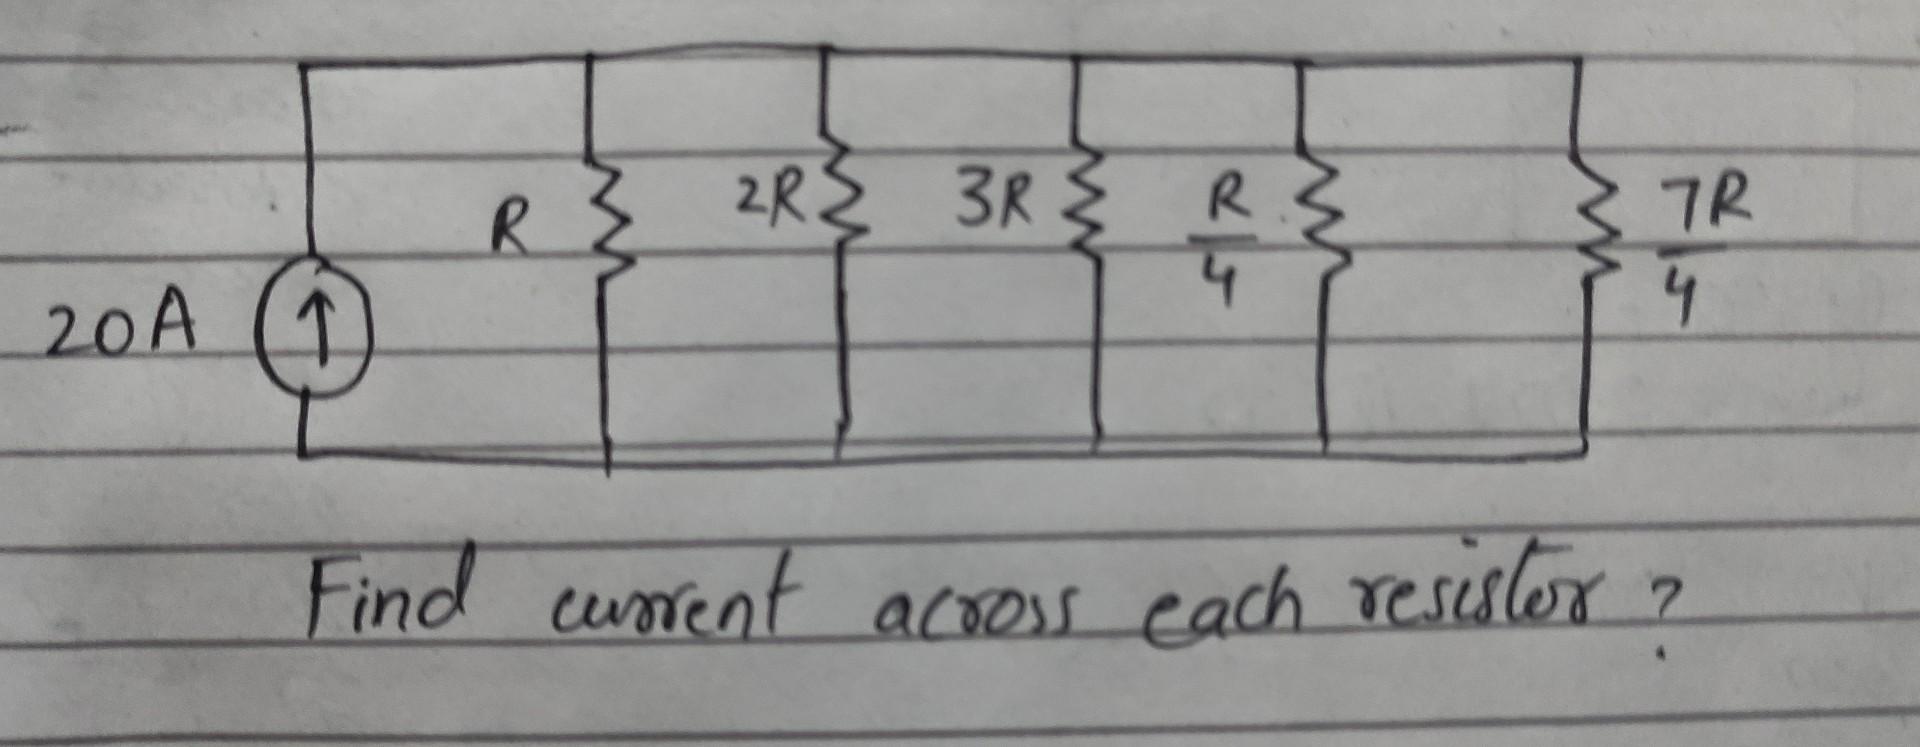 20A
R
2R
3R
R
4
7R
4
Find current across each resistor ?